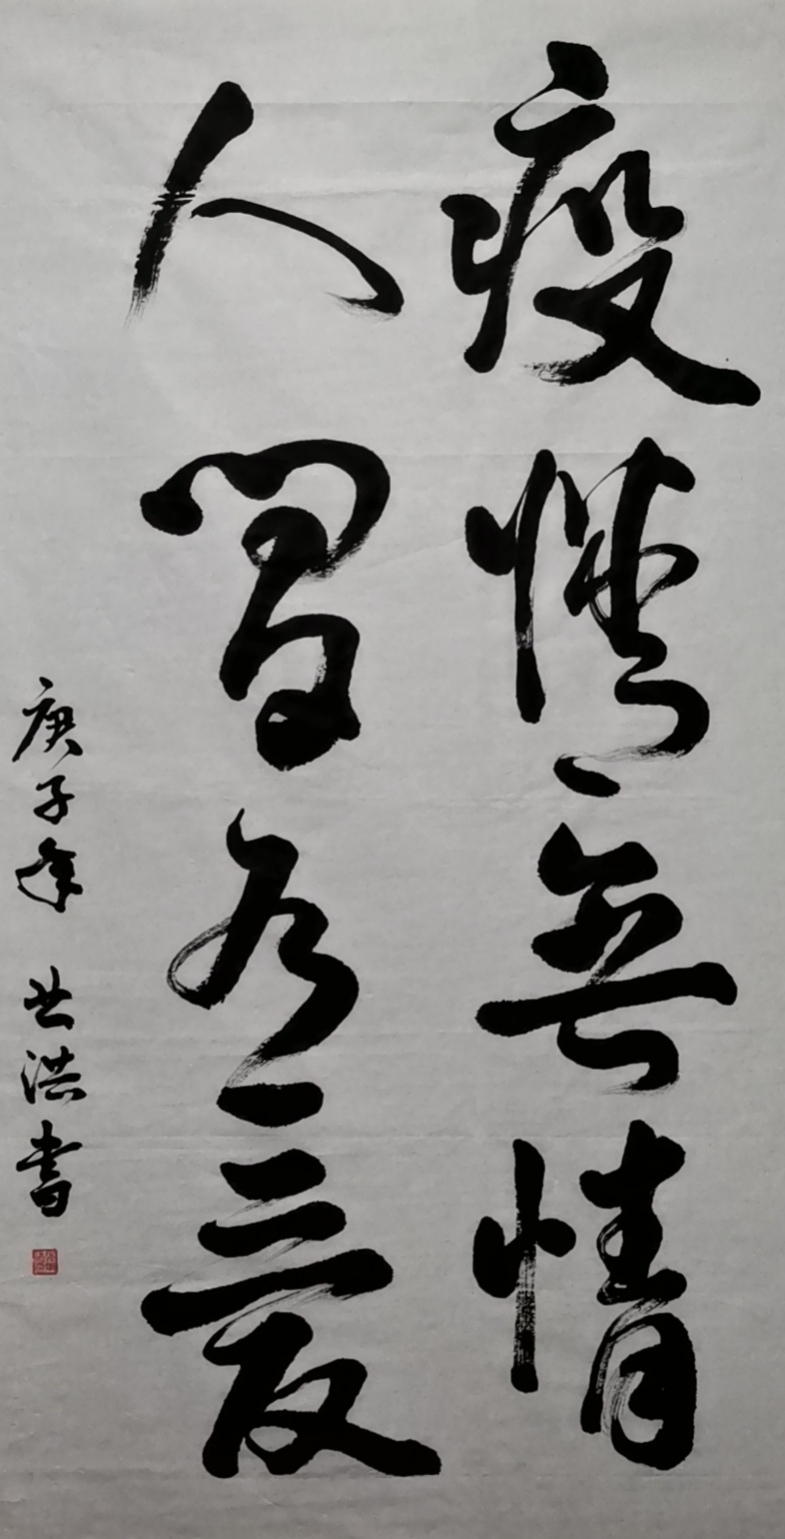 疫情无情
人间有爱
庚子年 世洪书